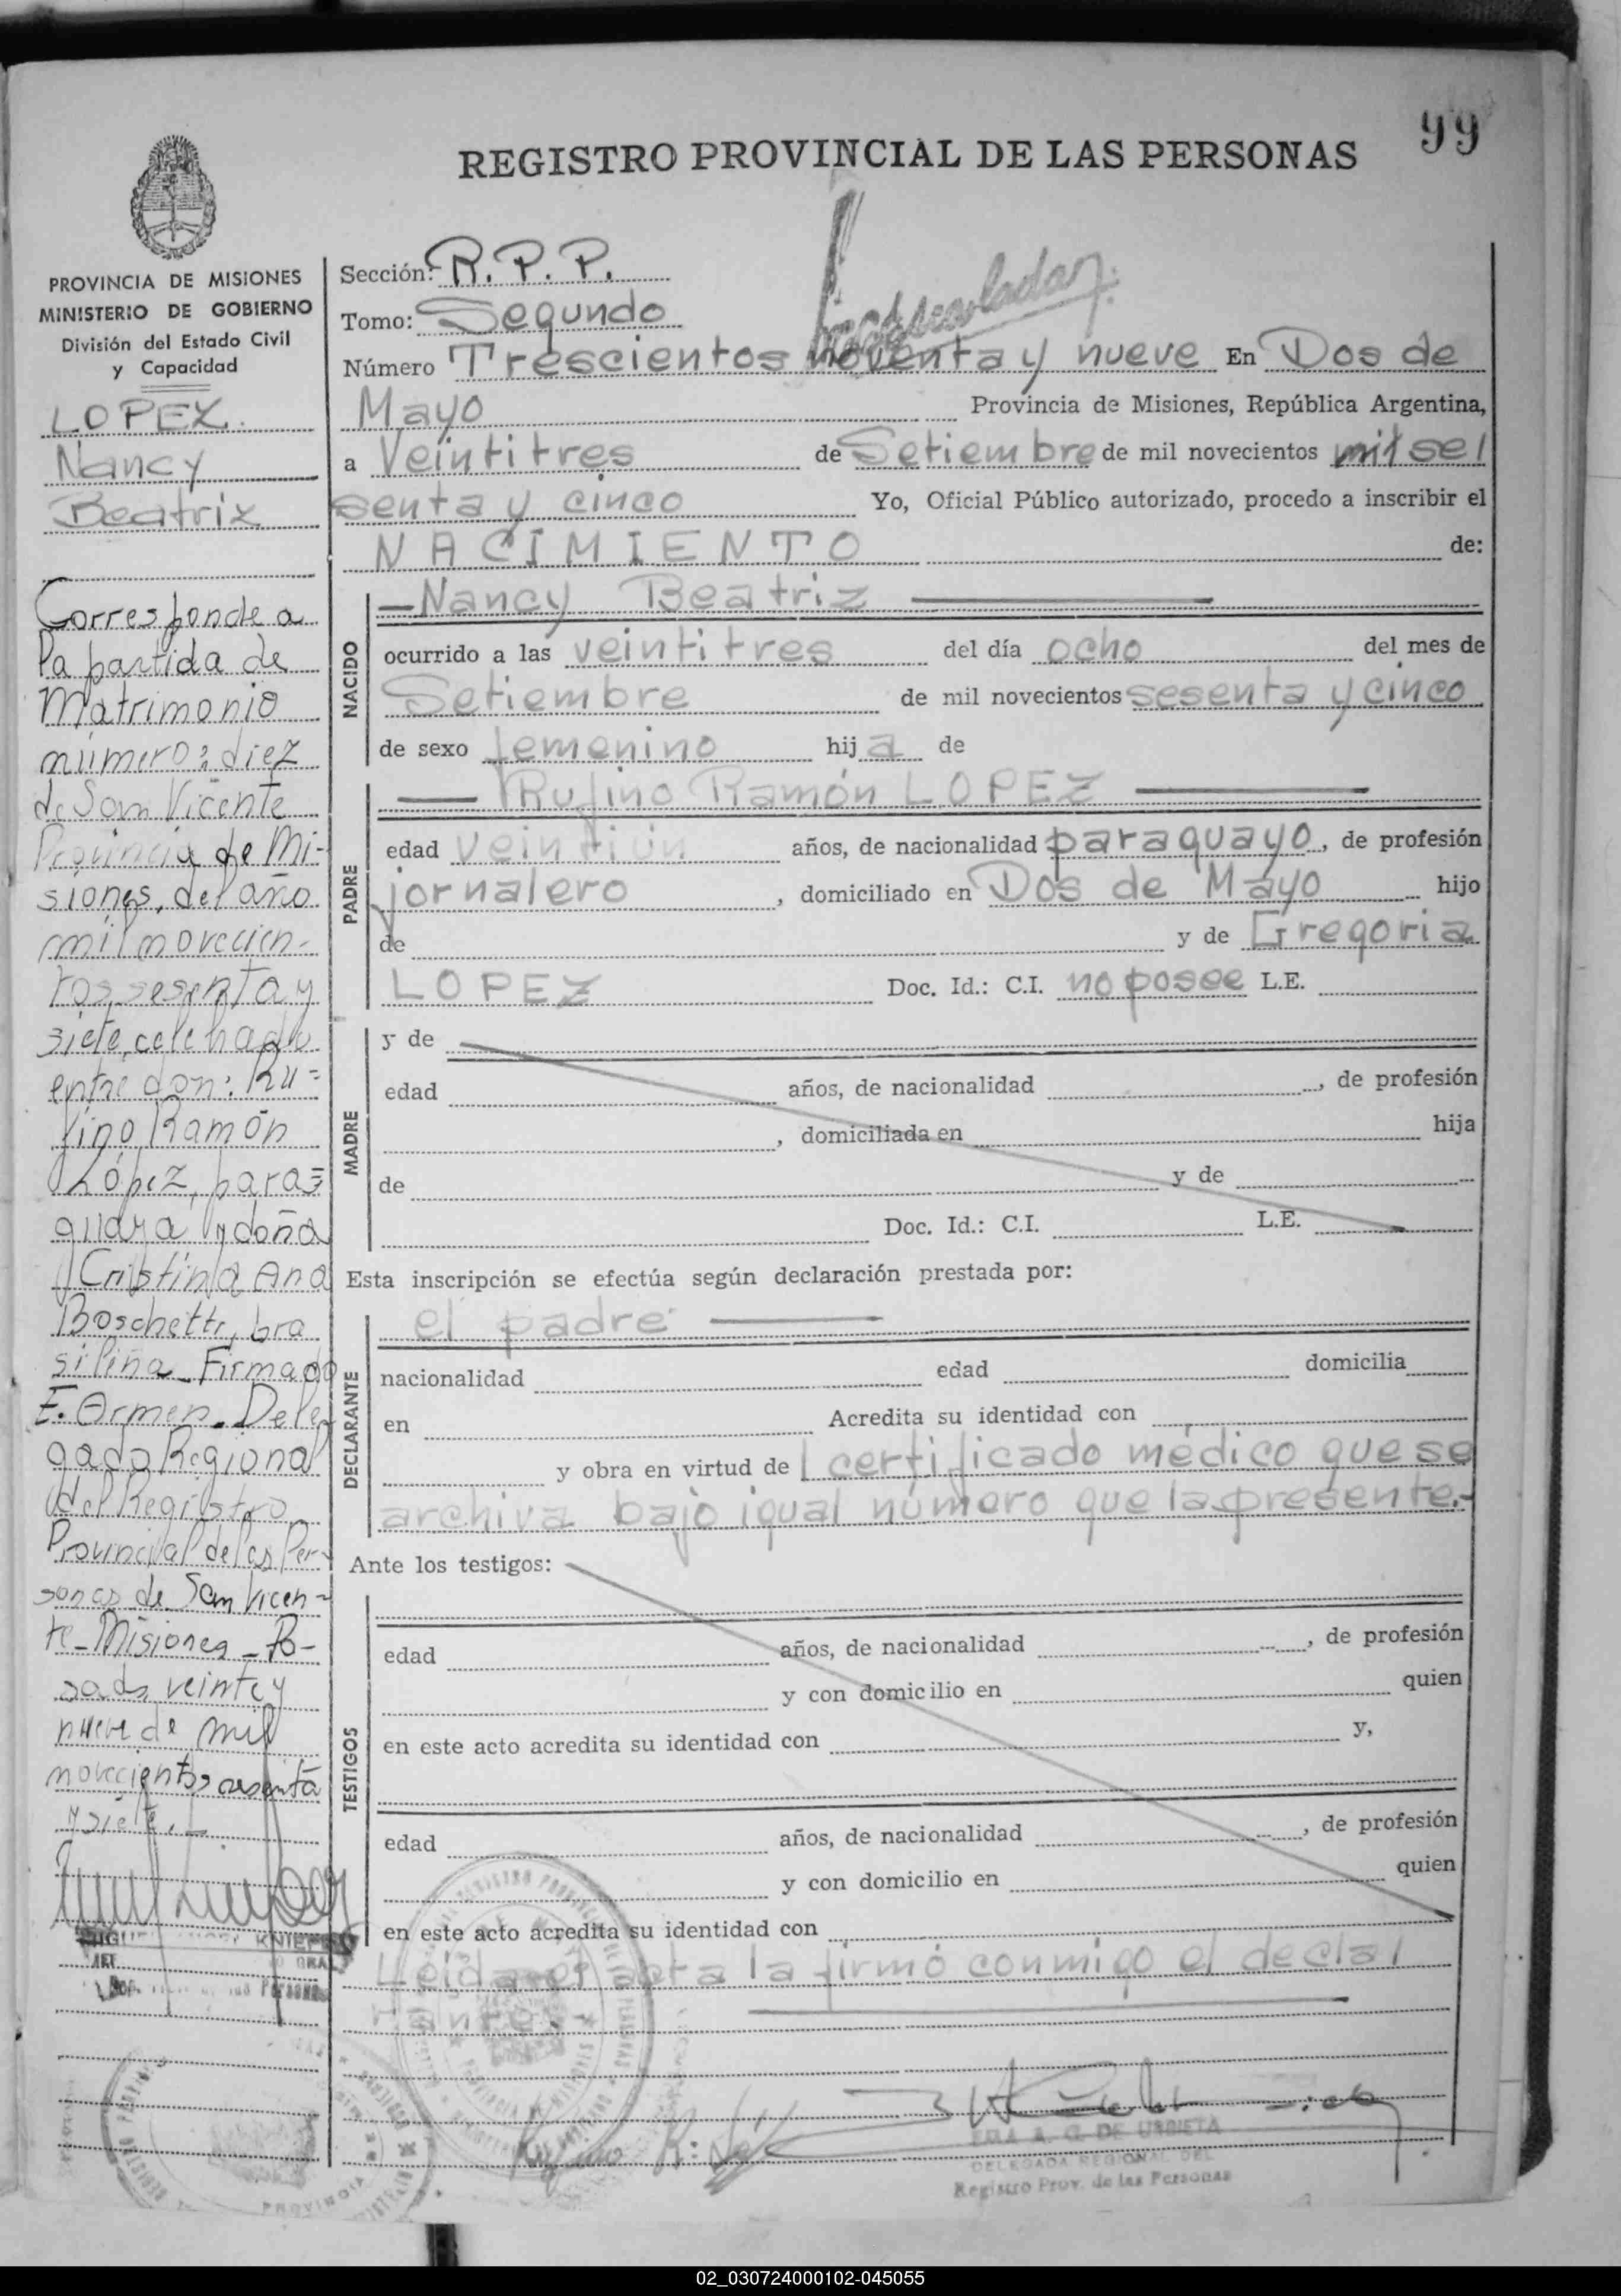 99
REGISTRO PROVINCIAL DE LAS PERSONAS
PROVINCIA DE MISIONES
MINISTERIO DE GOBIERNO
División del Estado Civil
y Capacidad
LOPEZ.
Nancy
Beatriz
Corresponde a
la partida de
Matrimonio
número: diez
de San Vicente
Provincia de Mi-
siones, del año
mil novecien-
tos sesenta y
siete, celebrado
entre don: Ru=
fino Ramón
López, para=
guaya y doña
Cristina Ana
Boschetti, bra
sileña_ Firmado
E. Ormen. Dele
gado Regional
del Registro
Provincial de las Per-
sonas de San Vicen-
te_Misiones_Po-
sadas veinte y
nueve de mil
novecientos sesenta
y siete._
KNIEPE
Sección: R. P. P.
Tomo: Segundo
Número Trescientos noventa y nueve En Dos de
Mayo Provincia de Misiones, República Argentina,
a Veintitres de Setiembre de mil novecientos mil se/
senta y cinco Yo, Oficial Público autorizado, procedo a inscribir el
NACIMIENTO de:
NACIDO
—Nancy Beatriz —
ocurrido a las veintitres del día ocho del mes de
Setiembre de mil novecientos sesenta y cinco
de sexo femenino hija de
PADRE
— Rufino Ramón LOPEZ —
edad veintiún años, de nacionalidad paraguayo, de profesión
jornalero, domiciliado en Dos de Mayo hijo
de y de Gregoria
LOPEZ Doc. Id.: C.I. no posee L.E.
MADRE
y de
edad años, de nacionalidad , de profesión
, domiciliada en hija
de y de
Doc. Id.: C.I. L.E.
Esta inscripción se efectúa según declaración prestada por:
DECLARANTE
el padre —
nacionalidad edad domicilia
en Acredita su identidad con
y obra en virtud de / certificado médico que se
archiva bajo igual número que la presente.-
Ante los testigos:
TESTIGOS
edad años, de nacionalidad , de profesión
y con domicilio en quien
en este acto acredita su identidad con y,
edad años, de nacionalidad , de profesión
y con domicilio en quien
en este acto acredita su identidad con
Leida el acta la firmó conmigo el decla/
rante.
A. G. DE URBIETA
DELEGADA REGIONAL DEL
Registro Prov. de las Personas
02_030724000102-045055